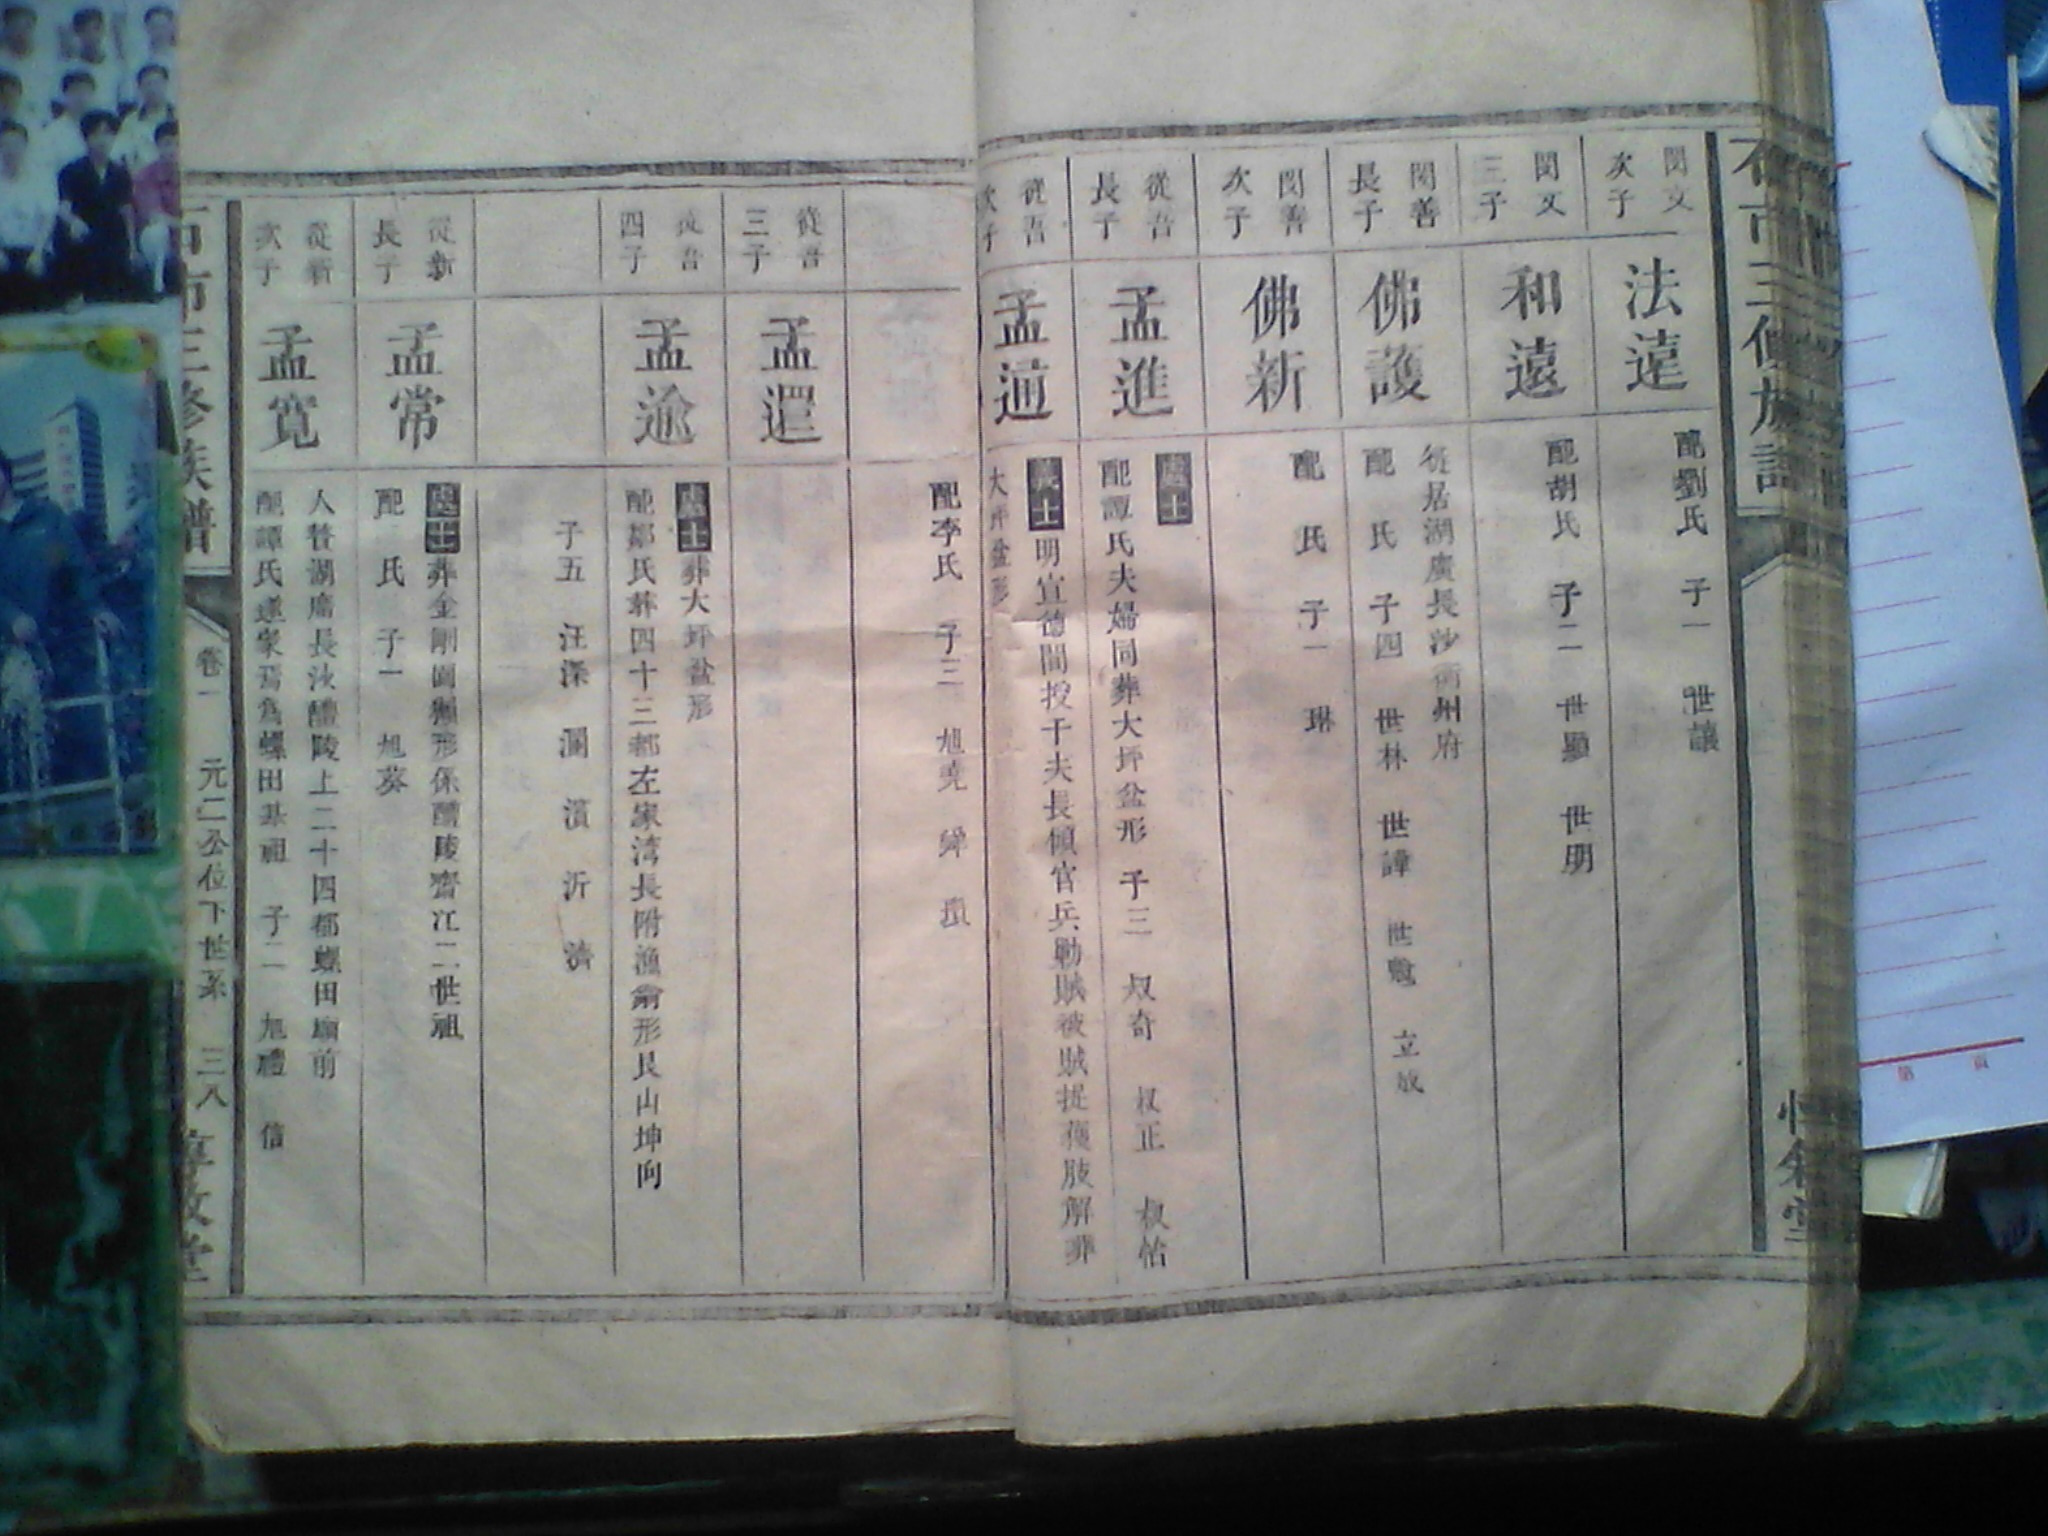 次子
法遠
配劉氏 子一 世讓
閔文
三子
和遠
配胡氏 子二 世顯 世明
閔善
長子
佛護
從居湖廣長沙衡州府
配 氏 子四 世林 世諱 世 立
閔善
次子
佛新
配 氏 子一 琳
從吾
長子
孟進
處士
配譚氏夫婦同葬大坪盆形 子三 叔奇 叔正 叔怡
從吾
次子
孟逈
義士明宣德間授千夫長傾官兵勦賊被賊捉獲肢解葬
大坪盆形
配李氏 子三 旭堯 舜
從吾
三子
孟還
從吾
四子
孟逾
處士葬大坪盆形
配鄒氏葬四十三都左家湾長附漁翁形艮山坤向
子五 汪深 瀾 濱 沂 濟
從新
長子
孟常
處士葬金剛園獺形係醴陵齊江二世祖
配 氏 子一 旭葵
從新
次子
孟寛
人贅湖廣長沙醴陵上二十四都螺田廟前
配譚氏遂家焉為螺田基祖 子二 旭禮 信
石市三修族譜
卷一
元二公位下世系
三八
惇敘堂